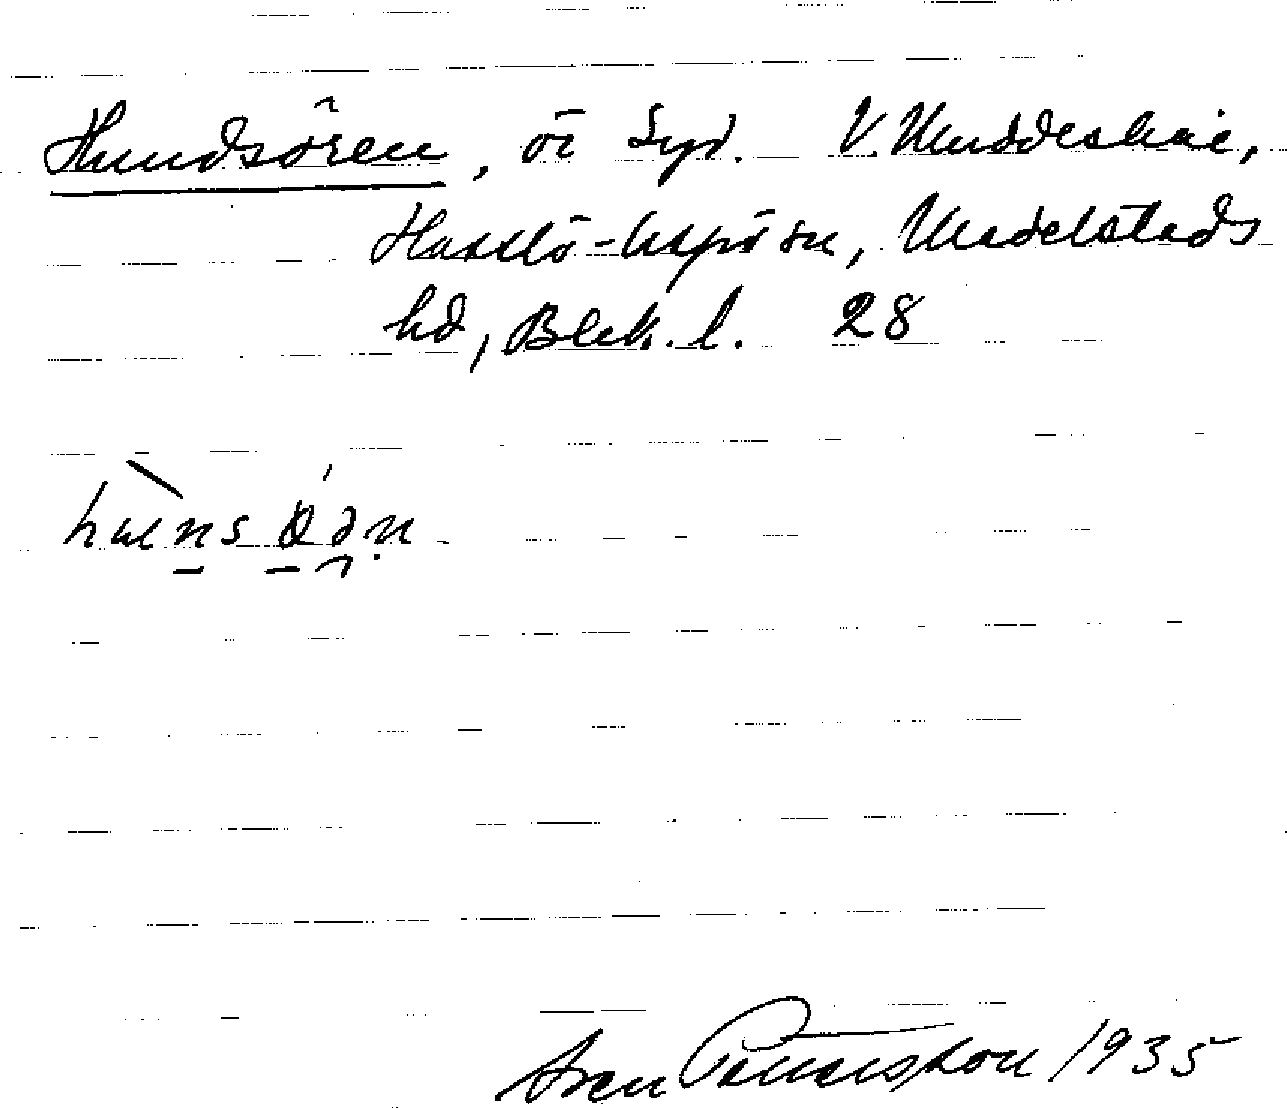 Hundsören, ö i Syd. V. Muddeskär,
Hasslö-Aspö sn, Medelstads
hd, Blek. l. 28
Sven Pettersson 1935